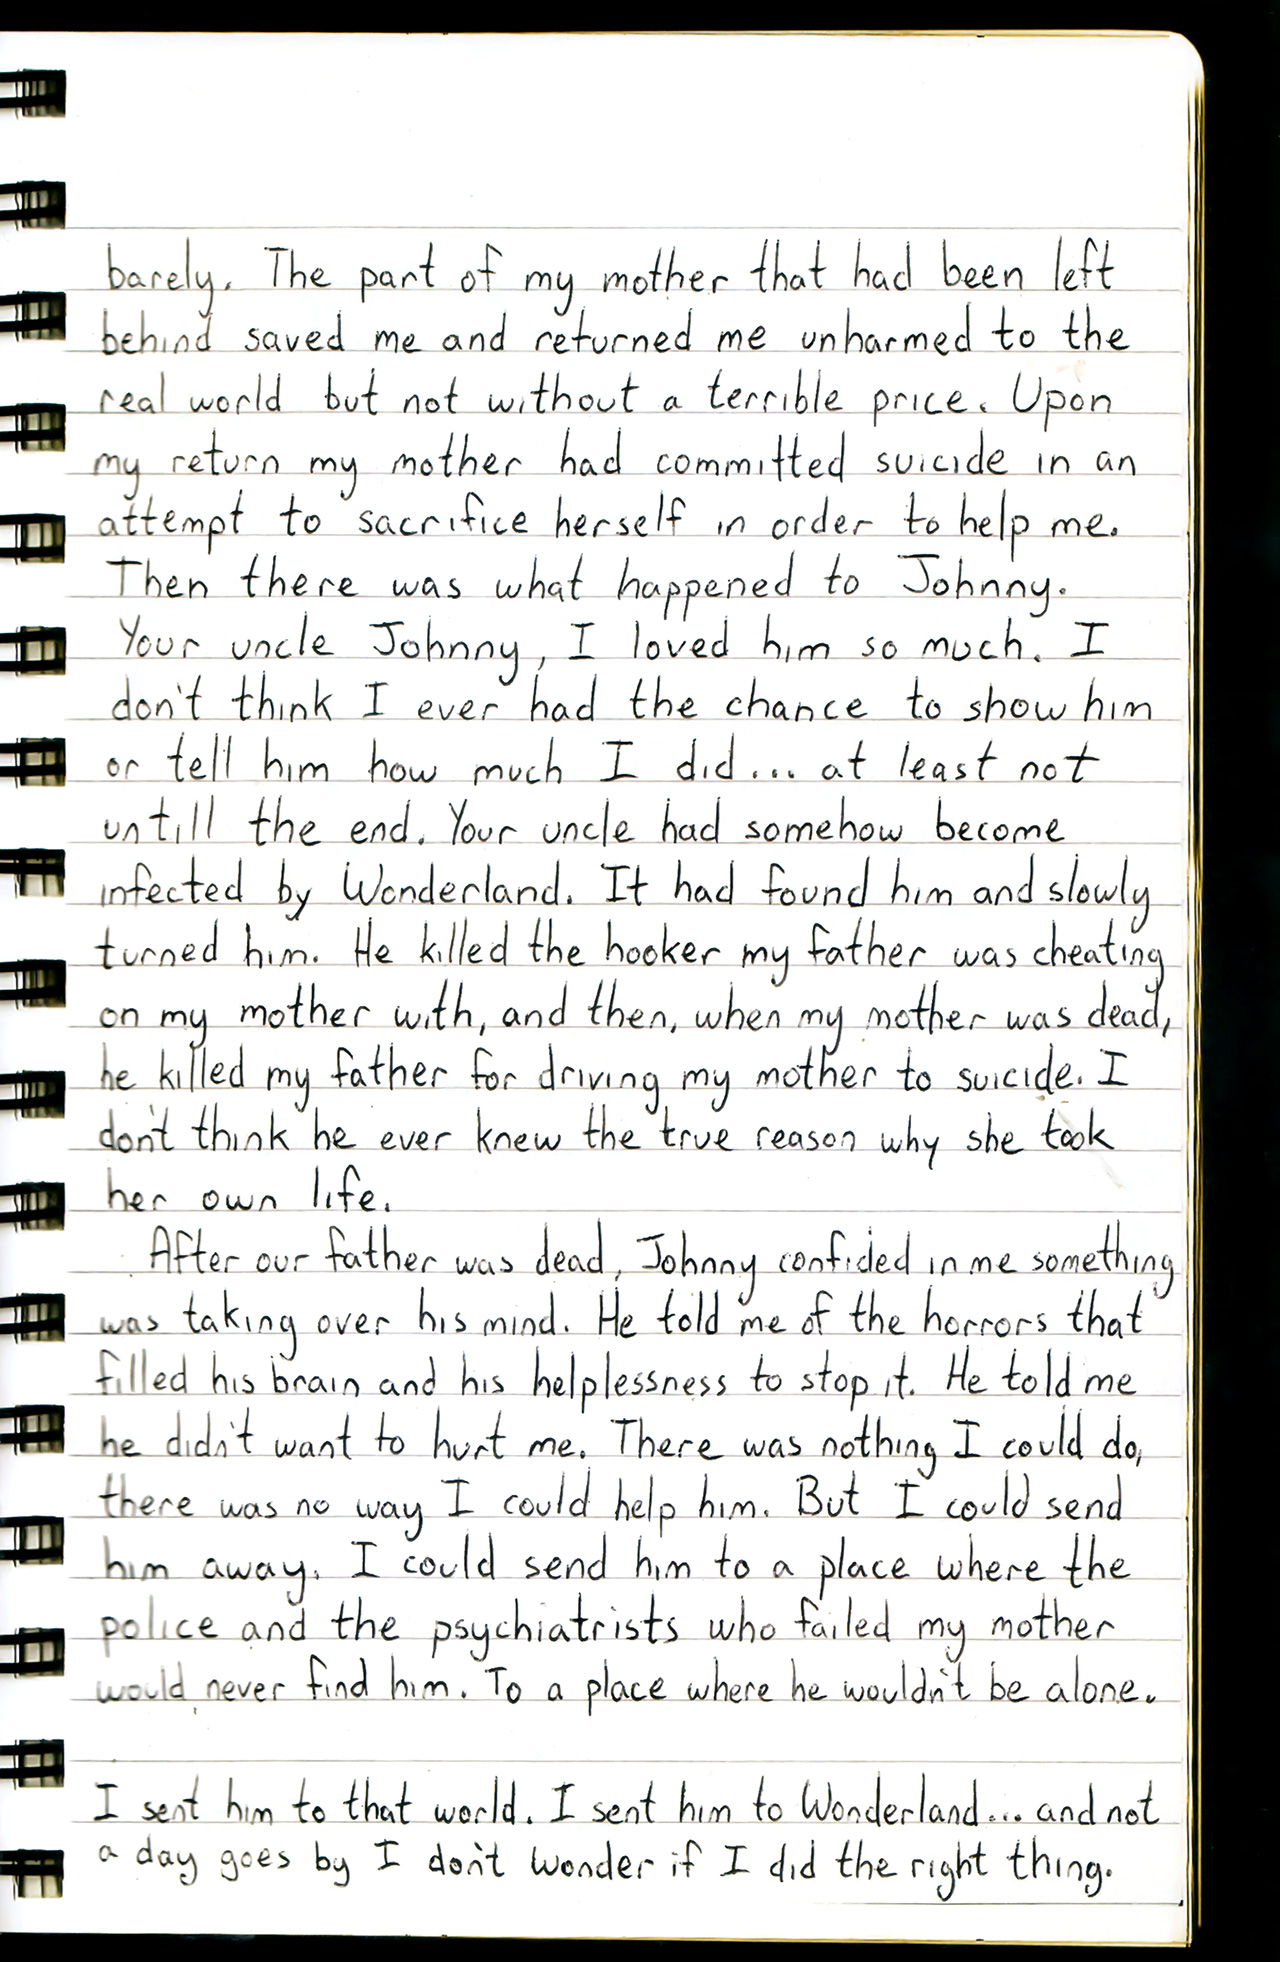 barely. The part of my mother that had been left
behind saved me and returned me unharmed to the
real world but not without a terrible price. Upon
my return my mother had committed suicide in an
attempt to sacrifice herself in order to help me.
Then there was what happened to Johnny.
Your uncle Johnny, I loved him so much. I
don't think I ever had the chance to show him
or tell him how much I did... at least not
untill the end. Your uncle had somehow become
infected by Wonderland. It had found him and slowly
turned him. He killed the hooker my father was cheating
on my mother with, and then, when my mother was dead,
he killed my father for driving my mother to suicide. I
don't think he ever knew the true reason why she took
her own life.
After our father was dead, Johnny confided in me something
was taking over his mind. He told me of the horrors that
filled his brain and his helplessness to stop it. He told me
he didn't want to hurt me. There was nothing I could do,
there was no way I could help him. But I could send
him away. I could send him to a place where the
police and the psychiatrists who failed my mother
would never find him. To a place where he wouldn't be alone.
I sent him to that world. I sent him to Wonderland... and not
a day goes by I don't wonder if I did the right thing.